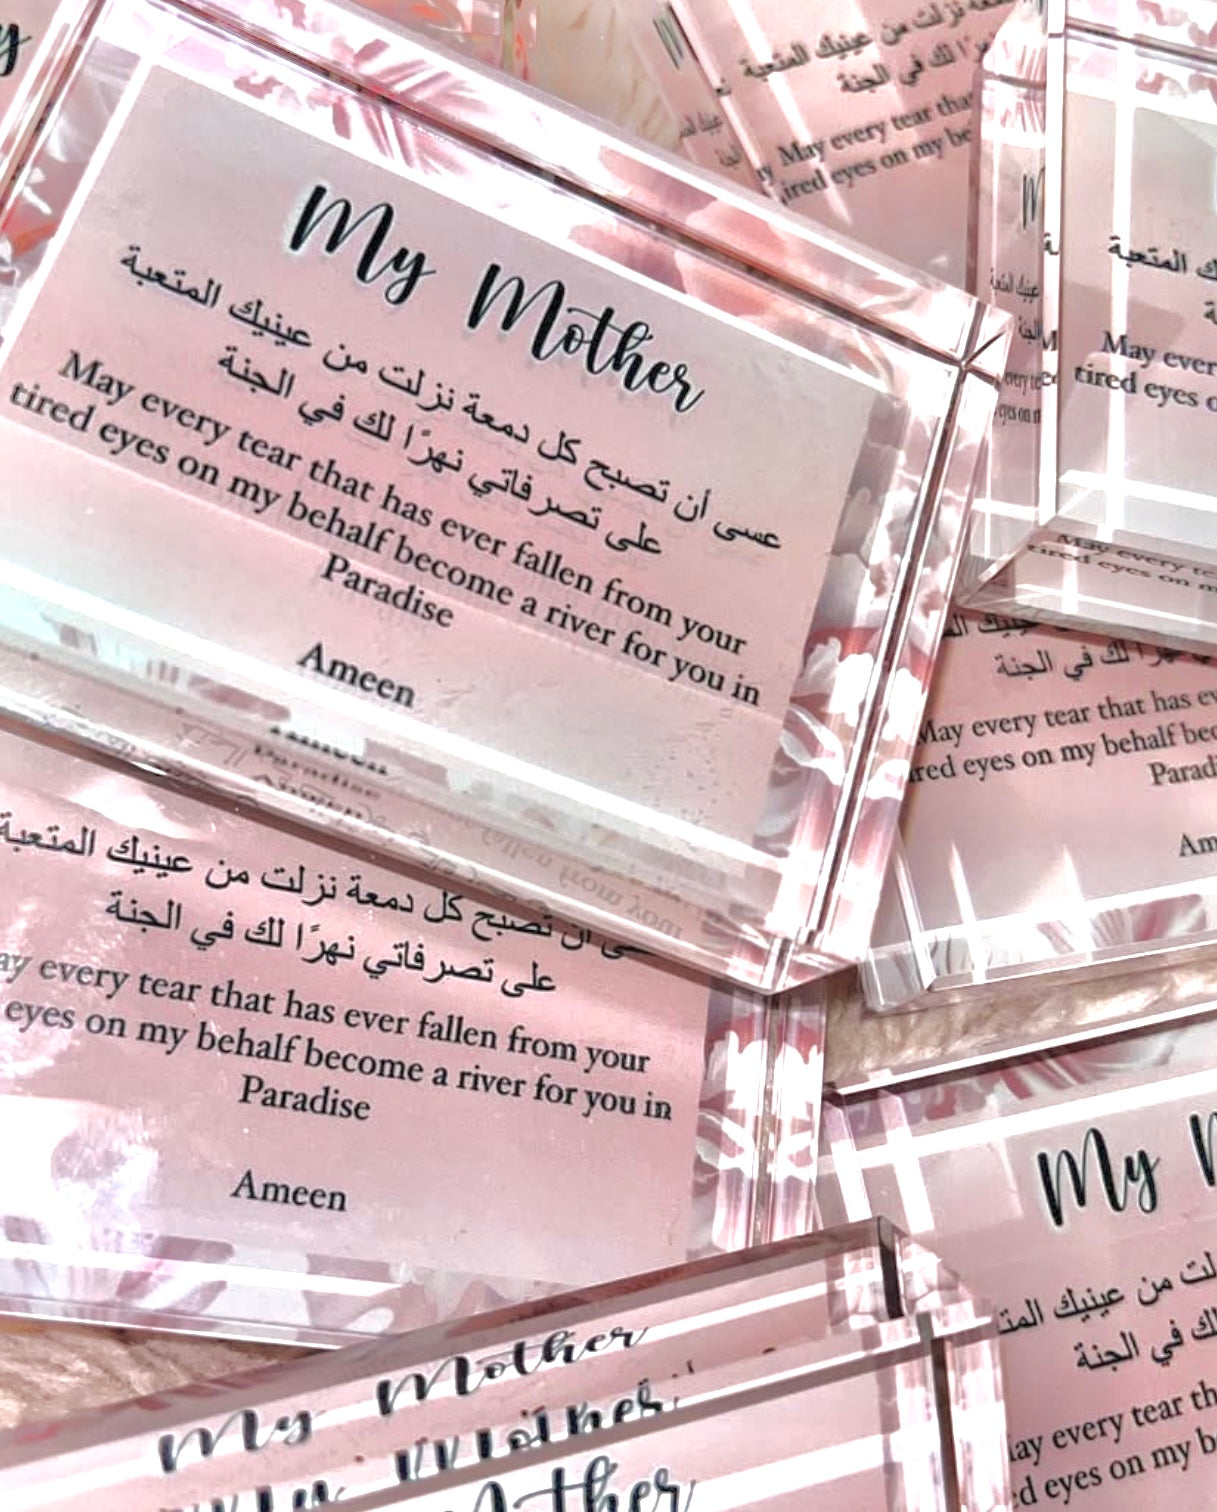 My Mother
عسى أن تصبح كل دمعة نزلت من عينيك المتعبة
على تصرفاتي نهرًا لك في الجنة
May every tear that has ever fallen from your
tired eyes on my behalf become a river for you in
Paradise
Ameen
نزلت من عينيك المتعبة
لك في الجنة
May every tear that
eyes on my be
المتعبة
May ever
tired eyes
May every
tired eyes on
عينيك المتعبة
نهرًا لك في الجنة
May every tear that has
eyes on my behalf
تصبح كل دمعة نزلت من عينيك المتعبة
على تصرفاتي نهرًا لك في الجنة
every tear that has ever fallen from your
eyes on my behalf become a river for you in
Paradise
Ameen
My
من عينيك
لك في الجنة
every tear
eyes on my
My Mother
Mother